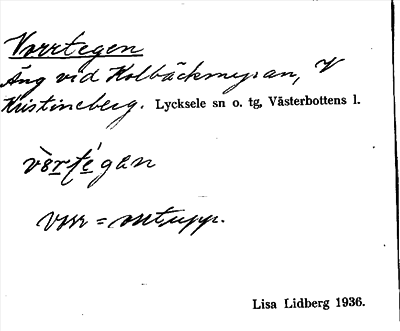 Vorrtegen
Äng vid Kolbäckmyran, V
Kristineberg. Lycksele sn o. tg, Västerbottens l.
vòrtégan
vorr = utupp.
Lisa Lidberg 1936.